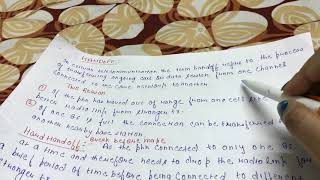 HANDOFF:
In cellular telecommunication the term handoff refers to the process
of transferring ongoing call or data session from one channel
connected to the core network to another
Two Reason
① If the phn has moved out of range from one cell site
radio link from stronger
② of one BS is full the connection can be transferred to
another nearby base station
Hard Handoff: "Break before make"
As the phn connected to only one BS
at a time and therefore needs to drop the radio link for
a brief period of time before being connected to different
stronger